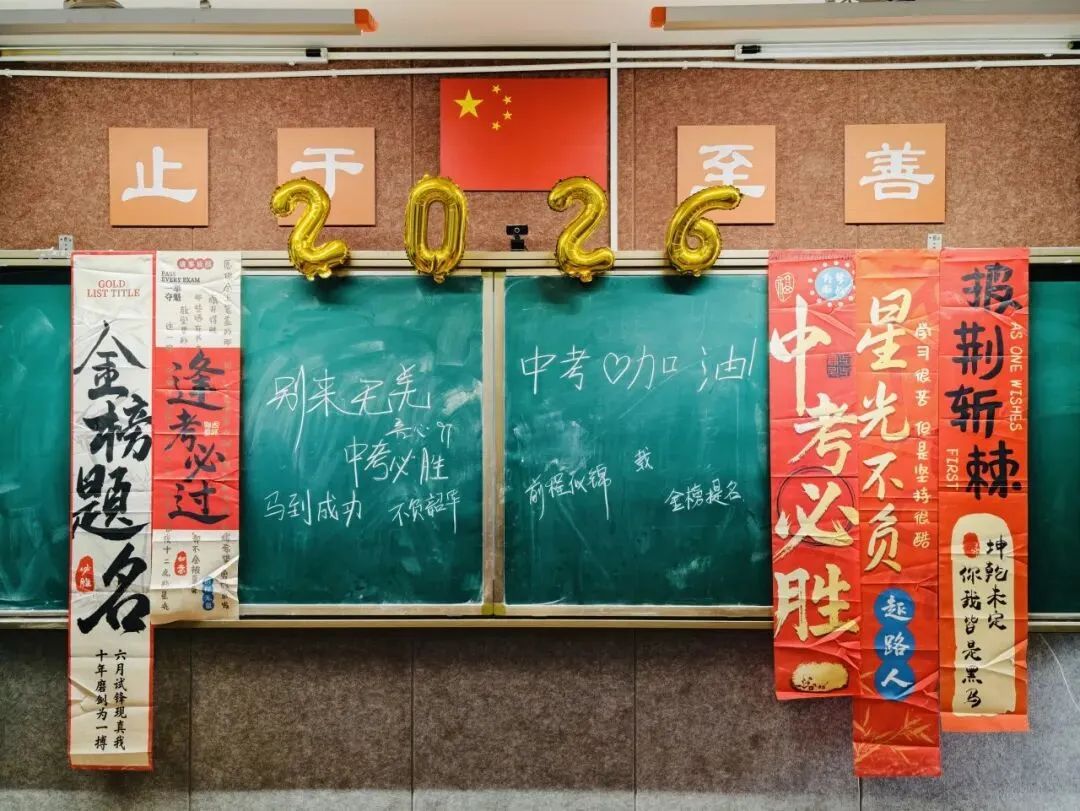 止于至善
2026
GOLD
LIST TITLE
金榜题名
必胜
六月试锋现真我
十年磨剑为一搏
PASS
EVERY EXAM
一举
夺魁
逢考必过
别来无恙
中考必胜
马到成功
不负韶华
中考♡加油
前程似锦
载
金榜提名
中考必胜
星光不负
赶路人
学习很苦 但是坚持很酷
披荆斩棘
AS ONE WISHES
FIRST
乾坤未定
你我皆是黑马